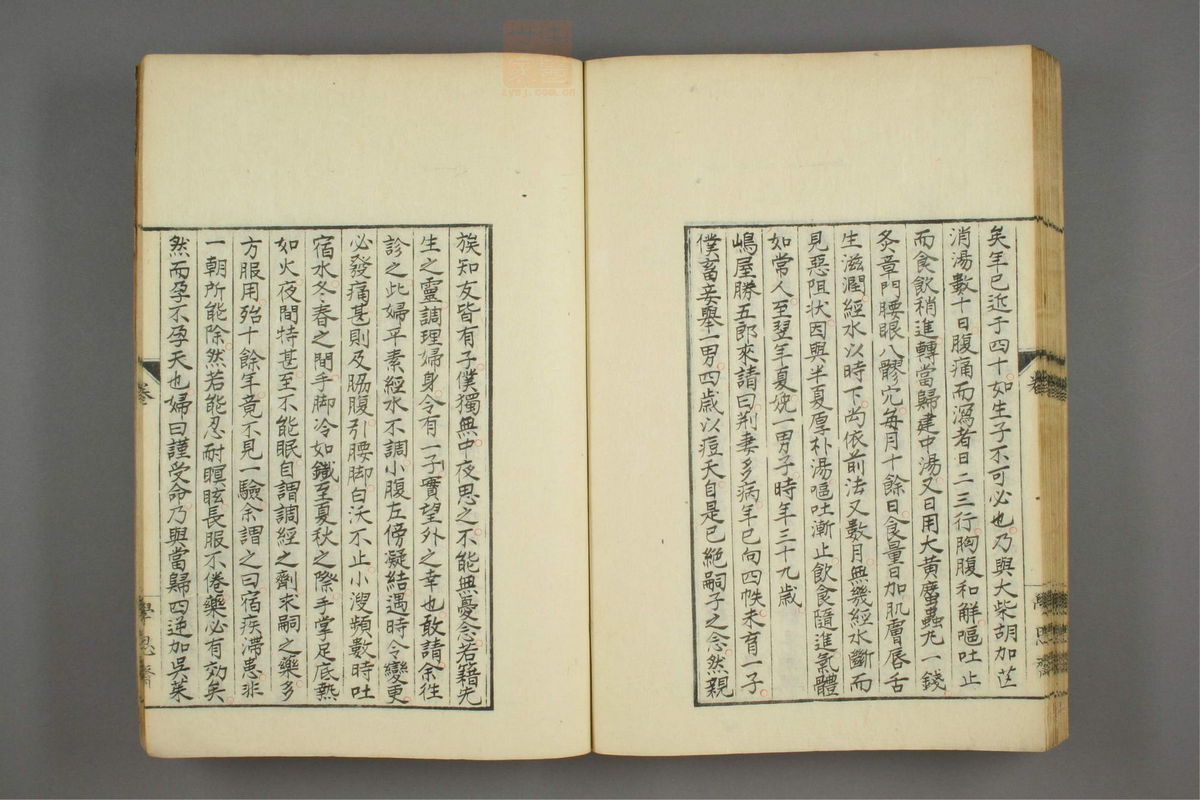 矣年已近于四十如生子不可必也乃與大柴胡加芒
消湯數十日腹痛而瀉者日二三行胸腹和解嘔吐止
而食飲稍進轉當歸建中湯又日用大黃䗪蟲丸一錢
灸章門腰眼八髎穴每月十餘日食量日加肌膚唇舌
生滋潤經水以時下尚依前法又數月無幾經水斷而
見惡阻狀因與半夏厚朴湯嘔吐漸止飲食隨進氣體
如常人至翌年夏娩一男子時年三十九歲
嶋屋勝五郎來請曰荆妻多病年已向四帙未育一子
僕畜妾舉一男四歲以痘夭自是已絕嗣子之念然親
族知友皆有子僕獨無中夜思之不能無憂念若籍先
生之靈調理婦身令有一子實望外之幸也敢請余往
診之此婦平素經水不調小腹左傍凝結遇時令變更
必發痛甚則及脇腹引腰脚白沃不止小溲頻數時吐
宿水冬春之間手脚冷如鐵至夏秋之際手掌足底熱
如火夜間特甚至不能眠自謂調經之劑求嗣之藥多
方服用殆十餘年竟不見一驗余謂之曰宿疾滯患非
一朝所能除然若能忍耐瞑眩長服不倦藥必有効矣
然而孕不孕天也婦曰謹受命乃與當歸四逆加吳茱
卷
學思齋
zysj.com.cn